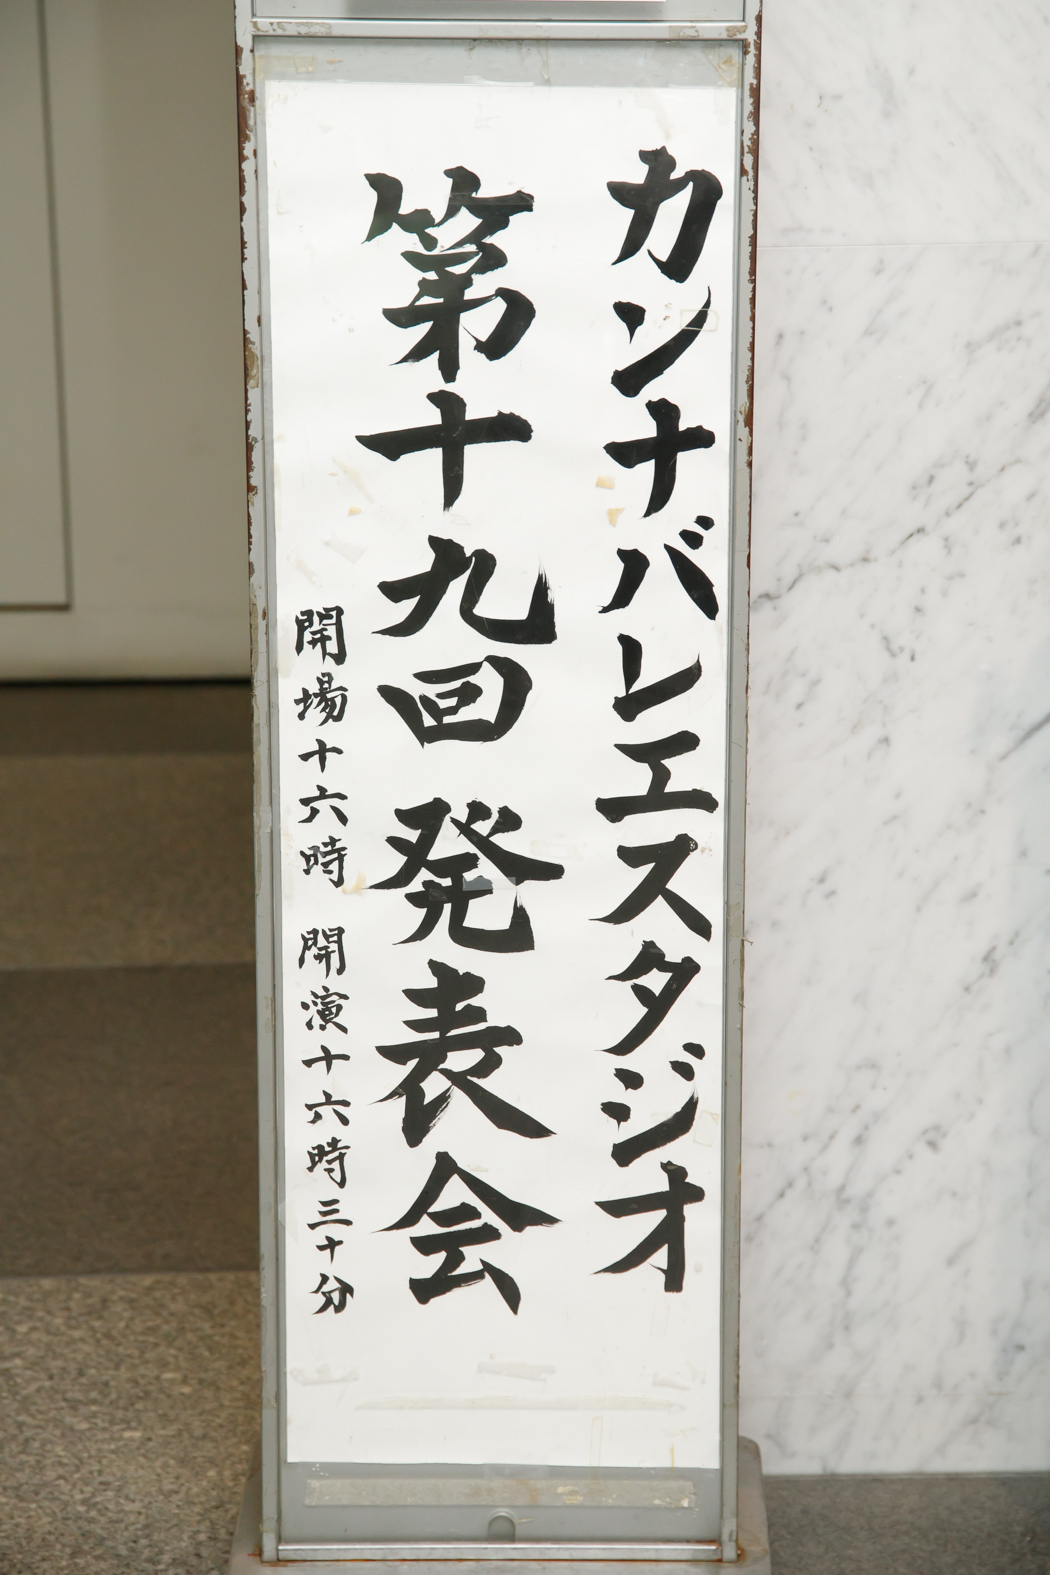 カンナバレエスタジオ
第十九回 発表会
開場十六時 開演十六時三十分